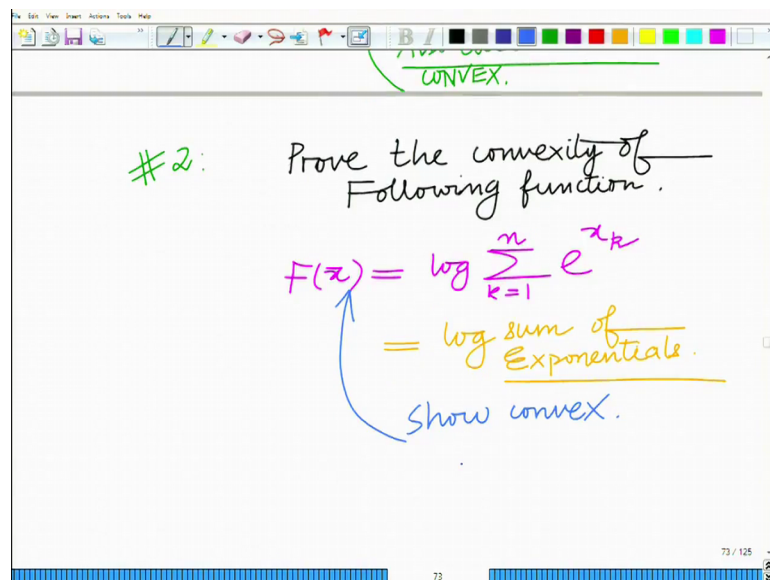 File Edit View Insert Actions Tools Help
B I
CONVEX.
#2: Prove the convexity of
Following function.
F(x̄) = log ∑_{k=1}^{n} e^{x_k}
= log sum of
Exponentials.
Show convex.
73 / 125
73